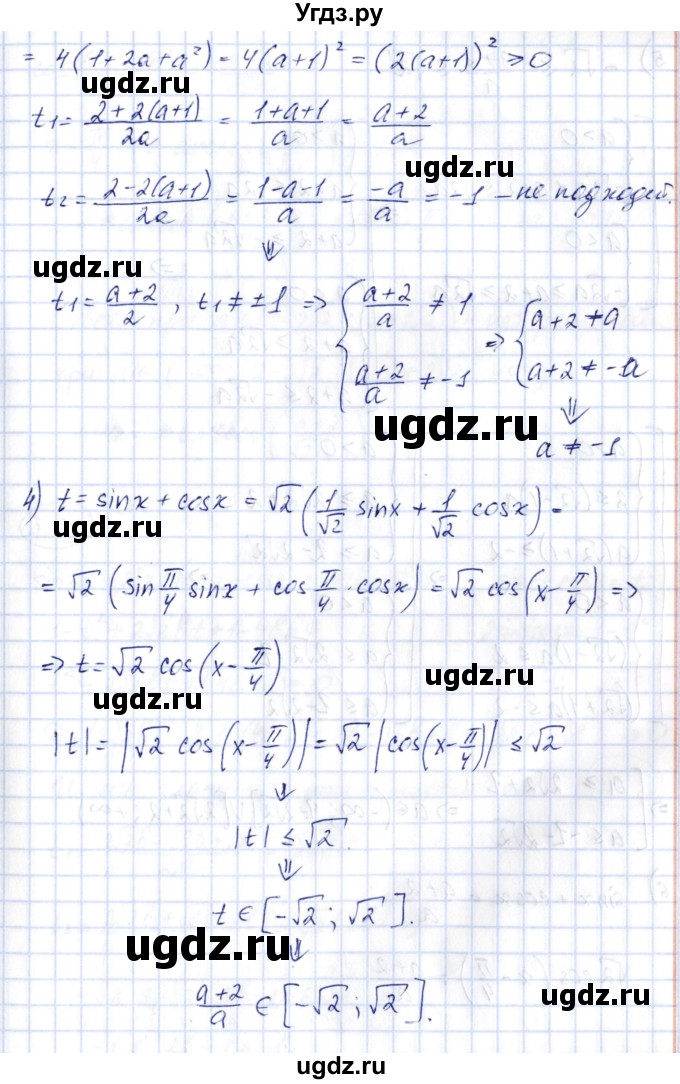 Угдз.ру
= 4(1+2a+a²) = 4(a+1)² = (2(a+1))² ≥ 0
t₁ = (2+2(a+1))/2a = (1+a+1)/a = (a+2)/a
ugdz.ru
t₂ = (2-2(a+1))/2a = (1-a-1)/a = -a/a = -1 – не подходей.
ugdz.ru
⇓
t₁ = (a+2)/2 , t₁ ≠ ±1 ⇒ { (a+2)/a ≠ 1 ; (a+2)/a ≠ -1 ⇒ { a+2 ≠ a ; a+2 ≠ -a
ugdz.ru
⇓
a ≠ -1
4) t = sinx + cosx = √2 (1/√2 sinx + 1/√2 cosx) =
ugdz.ru
= √2 (sin π/4 sinx + cos π/4 · cosx) = √2 cos(x - π/4) ⇒
ugdz.ru
⇒ t = √2 cos(x - π/4)
ugdz.ru
ugdz.ru
|t| = |√2 cos(x - π/4)| = √2 |cos(x - π/4)| ≤ √2
⇓
|t| ≤ √2.
ugdz.ru
⇓
t ∈ [-√2 ; √2].
ugdz.ru
⇓
(a+2)/a ∈ [-√2 ; √2].
ugdz.ru
ugdz.ru